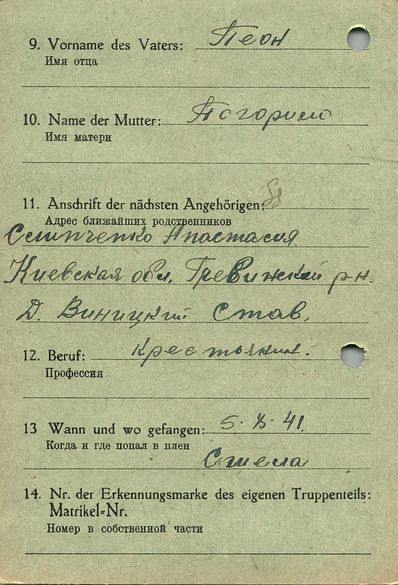 9. Vorname des Vaters: Леон
Имя отца
10. Name der Mutter:
Имя матери
11. Anschrift der nächsten Angehörigen:
Адрес ближайших родственников
Анастасия
Киевская обл. р-н.
Д. Виницкий Став.
12. Beruf: крестьянин.
Профессия
13 Wann und wo gefangen: 41
Когда и где попал в плен
Смела
14. Nr. der Erkennungsmarke des eigenen Truppenteils:
Matrikel-Nr.
Номер в собственной части